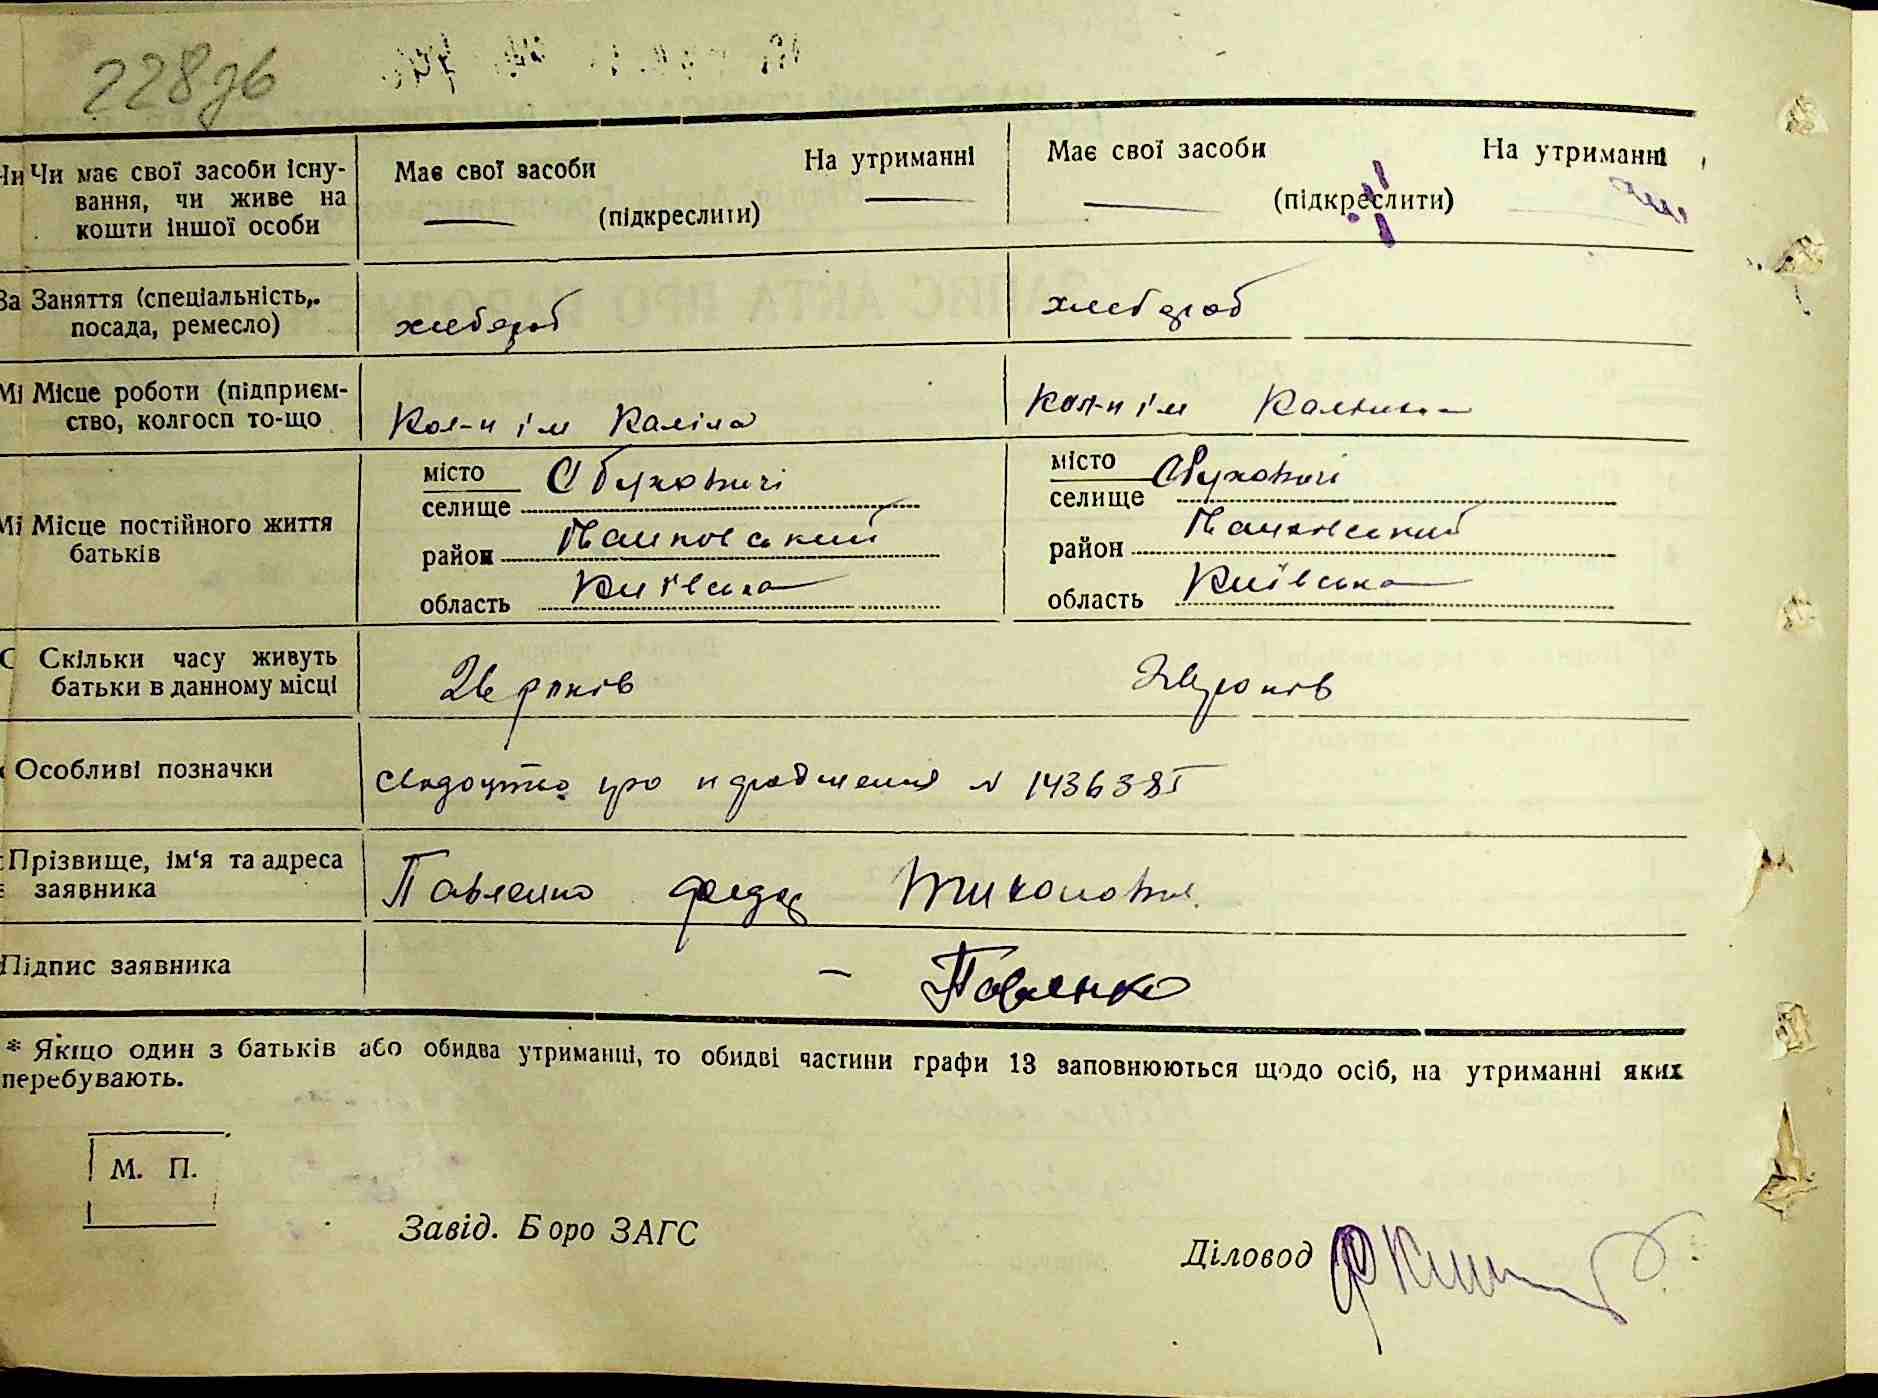 228зв
Чи Чи має свої засоби існу-
вання, чи живе на
кошти іншої особи
Має свої засоби На утриманні
(підкреслити)
Має свої засоби На утриманні
(підкреслити)
За Заняття (спеціальність,
посада, ремесло)
хлебороб
хлебороб
Мі Місце роботи (підприєм-
ство, колгосп то-що
Кол-п ім Калініна
Кол-п ім
Мі Місце постійного життя
батьків
місто Обуховичі
селище
район
область Київська
місто Обуховичі
селище
район
область Київська
С Скільки часу живуть
батьки в данному місці
років
років
Особливі позначки
про народження № 1436385
Прізвище, ім'я та адреса
заявника
Павленко Федор Тихонович
Підпис заявника
— Павленко
* Якщо один з батьків або обидва утриманці, то обидві частини графи 13 заповнюються щодо осіб, на утриманні яких
перебувають.
М. П.
Завід. Бюро ЗАГС
Діловод